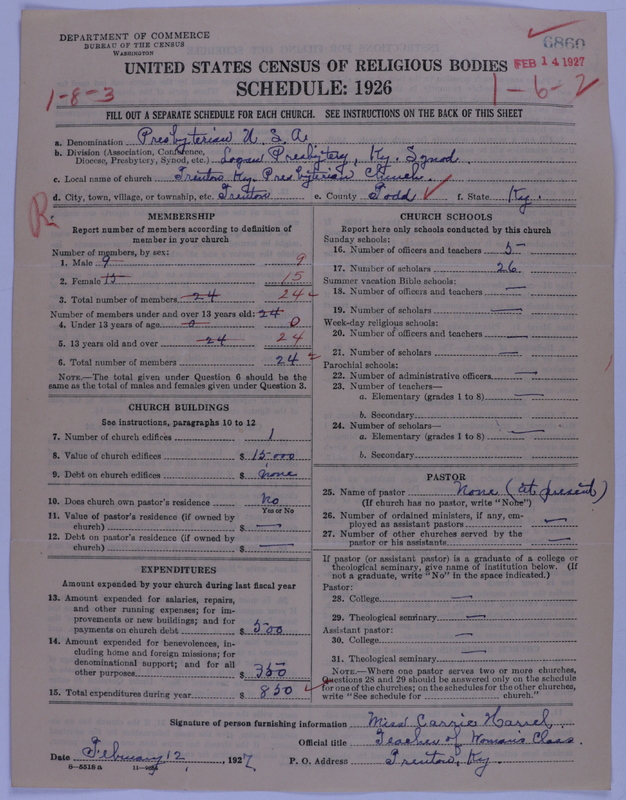 DEPARTMENT OF COMMERCE
BUREAU OF THE CENSUS
WASHINGTON
6860
FEB 14 1927
UNITED STATES CENSUS OF RELIGIOUS BODIES
SCHEDULE: 1926
1-8-3
1-6-2
FILL OUT A SEPARATE SCHEDULE FOR EACH CHURCH. SEE INSTRUCTIONS ON THE BACK OF THIS SHEET
a. Denomination Presbyterian U. S. A.
b. Division (Association, Conference, Diocese, Presbytery, Synod, etc.) Logan Presbytery, Ky. Synod
c. Local name of church Trenton Ky. Presbyterian Church.
d. City, town, village, or township, etc. Trenton e. County Todd f. State Ky.
R
MEMBERSHIP
Report number of members according to definition of
member in your church
Number of members, by sex:
1. Male 9 9
2. Female 15 15
3. Total number of members 24 24
Number of members under and over 13 years old: 24
4. Under 13 years of age 0 0
5. 13 years old and over 24 24
6. Total number of members 24
NOTE.—The total given under Question 6 should be the
same as the total of males and females given under Question 3.
CHURCH BUILDINGS
See instructions, paragraphs 10 to 12
7. Number of church edifices 1
8. Value of church edifices $ 15000
9. Debt on church edifices $ none
10. Does church own pastor's residence No
Yes or No
11. Value of pastor's residence (if owned by
church) $ —
12. Debt on pastor's residence (if owned by
church) $ —
EXPENDITURES
Amount expended by your church during last fiscal year
13. Amount expended for salaries, repairs,
and other running expenses; for im-
provements or new buildings; and for
payments on church debt $ 500
14. Amount expended for benevolences, in-
cluding home and foreign missions; for
denominational support; and for all
other purposes $ 350
15. Total expenditures during year $ 850
CHURCH SCHOOLS
Report here only schools conducted by this church
Sunday schools:
16. Number of officers and teachers 5
17. Number of scholars 26
Summer vacation Bible schools:
18. Number of officers and teachers —
19. Number of scholars —
Week-day religious schools:
20. Number of officers and teachers —
21. Number of scholars —
Parochial schools:
22. Number of administrative officers —
23. Number of teachers—
a. Elementary (grades 1 to 8) —
b. Secondary
24. Number of scholars—
a. Elementary (grades 1 to 8) —
b. Secondary
PASTOR
25. Name of pastor None (at present)
(If church has no pastor, write "None")
26. Number of ordained ministers, if any, em-
ployed as assistant pastors —
27. Number of other churches served by the
pastor or his assistants —
If pastor (or assistant pastor) is a graduate of a college or
theological seminary, give name of institution below. (If
not a graduate, write "No" in the space indicated.)
Pastor:
28. College —
29. Theological seminary —
Assistant pastor:
30. College —
31. Theological seminary —
NOTE.—Where one pastor serves two or more churches,
questions 28 and 29 should be answered only on the schedule
for one of the churches; on the schedules for the other churches,
write "See schedule for church."
Signature of person furnishing information Miss Carrie Harrel.
Official title Teacher of Woman's Class.
Date February 12, 1927 P. O. Address Trenton, Ky.
8—5518a